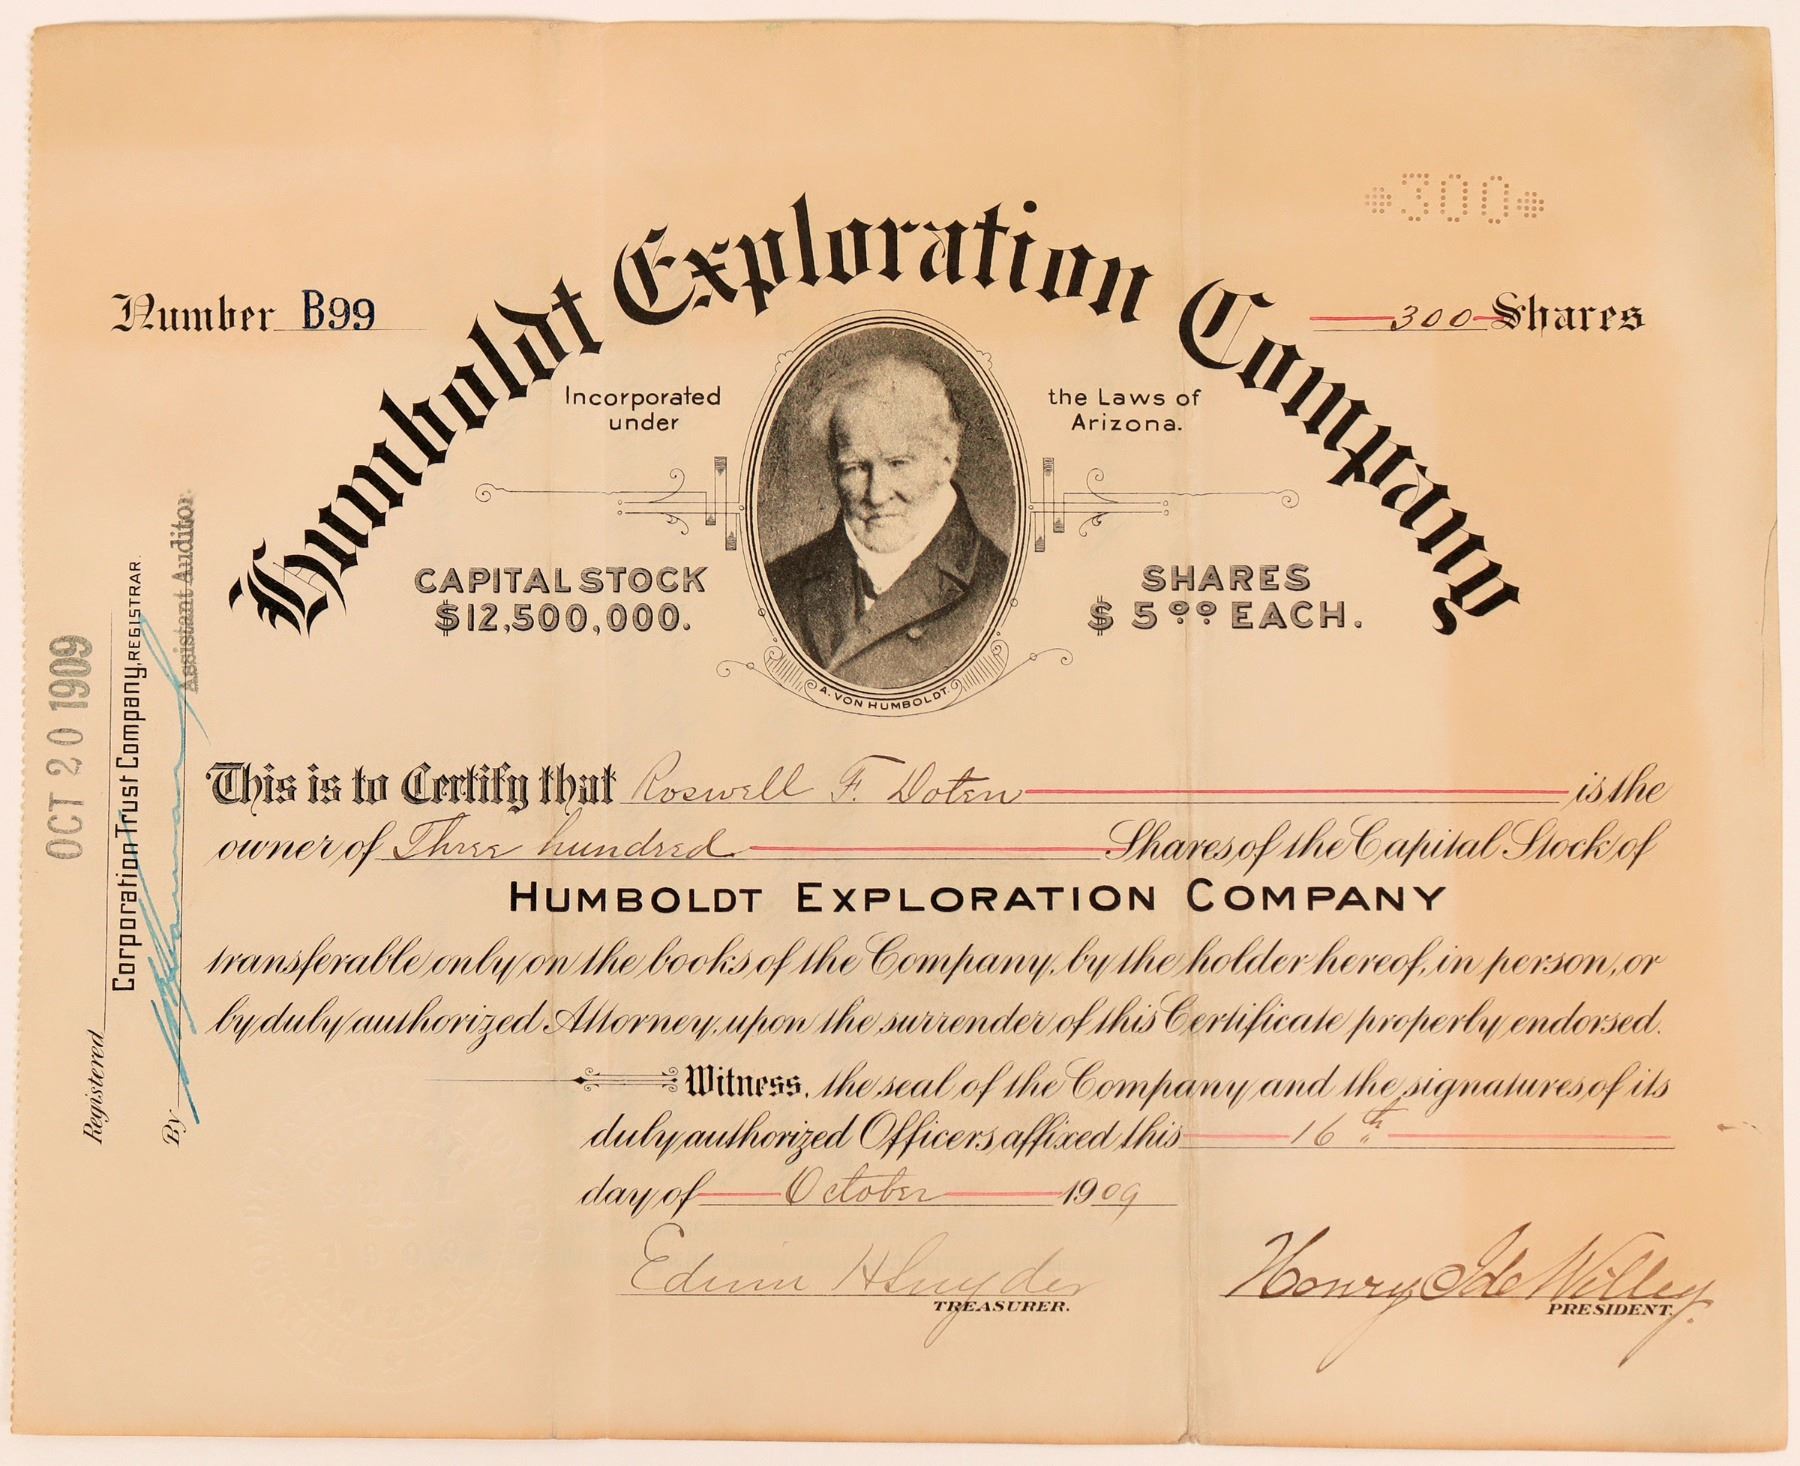 300
Humboldt Exploration Company
Number B99
300 Shares
Incorporated under
the Laws of Arizona.
CAPITAL STOCK
$12,500,000.
SHARES
$5.00 EACH.
A. VON HUMBOLDT.
This is to Certify that Roswell F. Doten is the
owner of Three hundred Shares of the Capital Stock of
HUMBOLDT EXPLORATION COMPANY
transferable only on the books of the Company, by the holder hereof, in person, or
by duly authorized Attorney, upon the surrender of this Certificate properly endorsed.
Witness, the seal of the Company and the signatures of its
duly authorized Officers affixed this 16th
day of October 1909
Edwin H Snyder
TREASURER.
Henry Ide Willey.
PRESIDENT.
OCT 20 1909
Registered
Corporation Trust Company, REGISTRAR.
By
Assistant Auditor.
1909